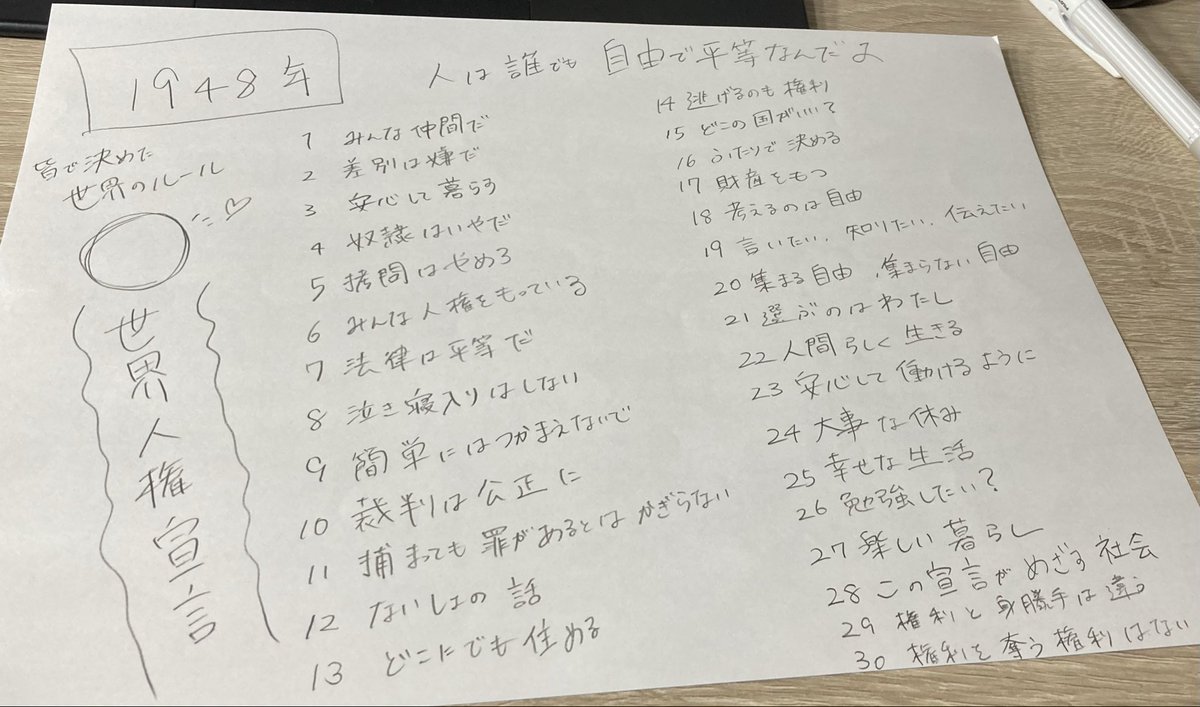 1948年
人は誰でも 自由で平等なんだよ
皆で決めた
世界のルール
世界人権宣言
1 みんな仲間だ
2 差別は嫌だ
3 安心して暮らす
4 奴隷はいやだ
5 拷問はやめろ
6 みんな人権をもっている
7 法律は平等だ
8 泣き寝入りはしない
9 簡単にはつかまえないで
10 裁判は公正に
11 捕まっても罪があるとはかぎらない
12 ないしょの話
13 どこにでも住める
14 逃げるのも権利
15 どこの国がいい?
16 ふたりで決める
17 財産をもつ
18 考えるのは自由
19 言いたい、知りたい、伝えたい
20 集まる自由、集まらない自由
21 選ぶのはわたし
22 人間らしく生きる
23 安心して働けるように
24 大事な休み
25 幸せな生活
26 勉強したい?
27 楽しい暮らし
28 この宣言がめざす社会
29 権利と身勝手は違う
30 権利を奪う権利はない